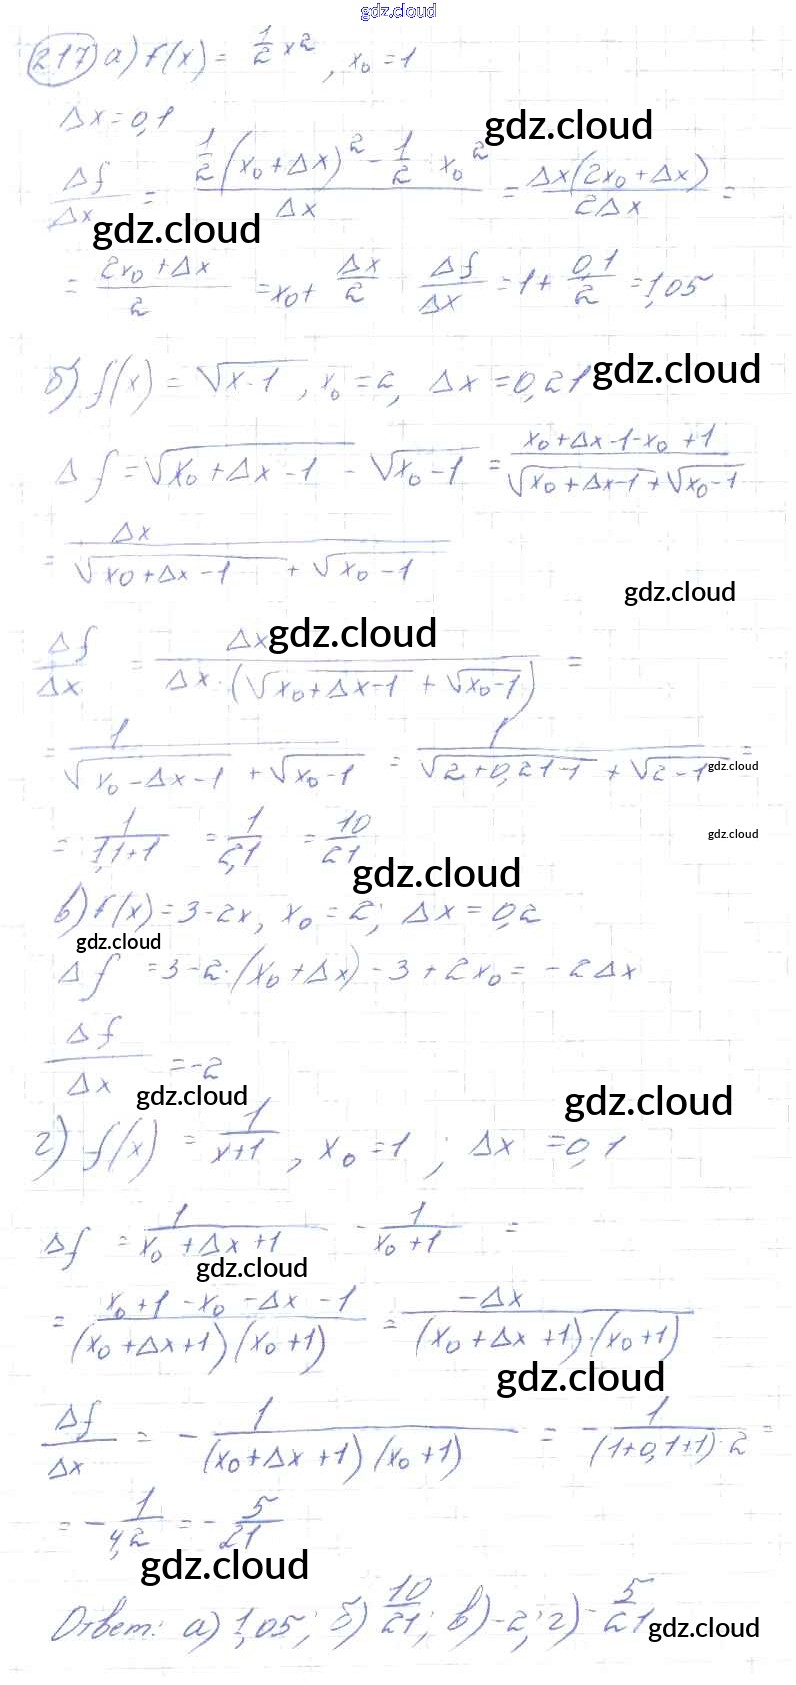 gdz.cloud
217) а) f(x) = 1/2 x², x₀ = 1
Δx = 0,1
gdz.cloud
Δf/Δx = (1/2 (x₀ + Δx)² - 1/2 x₀²)/Δx = Δx(2x₀ + Δx)/2Δx =
gdz.cloud
= (2x₀ + Δx)/2 = x₀ + Δx/2   Δf/Δx = 1 + 0,1/2 = 1,05
б) f(x) = √(x-1), x₀ = 2, Δx = 0,21
gdz.cloud
Δf = √(x₀ + Δx - 1) - √(x₀ - 1) = (x₀ + Δx - 1 - x₀ + 1)/(√(x₀ + Δx - 1) + √(x₀ - 1))
= Δx/(√(x₀ + Δx - 1) + √(x₀ - 1))
gdz.cloud
gdz.cloud
Δf/Δx = Δx/(Δx · (√(x₀ + Δx - 1) + √(x₀ - 1))) =
= 1/(√(x₀ - Δx - 1) + √(x₀ - 1)) = 1/(√(2 + 0,21 - 1) + √(2 - 1)) =
gdz.cloud
= 1/(1,1 + 1) = 1/2,1 = 10/21
gdz.cloud
gdz.cloud
в) f(x) = 3 - 2x, x₀ = 2; Δx = 0,2
gdz.cloud
Δf = 3 - 2·(x₀ + Δx) - 3 + 2x₀ = -2Δx
Δf/Δx = -2
gdz.cloud
gdz.cloud
г) f(x) = 1/(x+1), x₀ = 1; Δx = 0,1
Δf = 1/(x₀ + Δx + 1) - 1/(x₀ + 1) =
gdz.cloud
= (x₀ + 1 - x₀ - Δx - 1)/((x₀ + Δx + 1)(x₀ + 1)) = -Δx/((x₀ + Δx + 1)·(x₀ + 1))
gdz.cloud
Δf/Δx = - 1/((x₀ + Δx + 1)(x₀ + 1)) = - 1/((1 + 0,1 + 1)·2) =
= - 1/4,2 = - 5/21
gdz.cloud
Ответ: а) 1,05; б) 10/21; в) -2; г) - 5/21
gdz.cloud